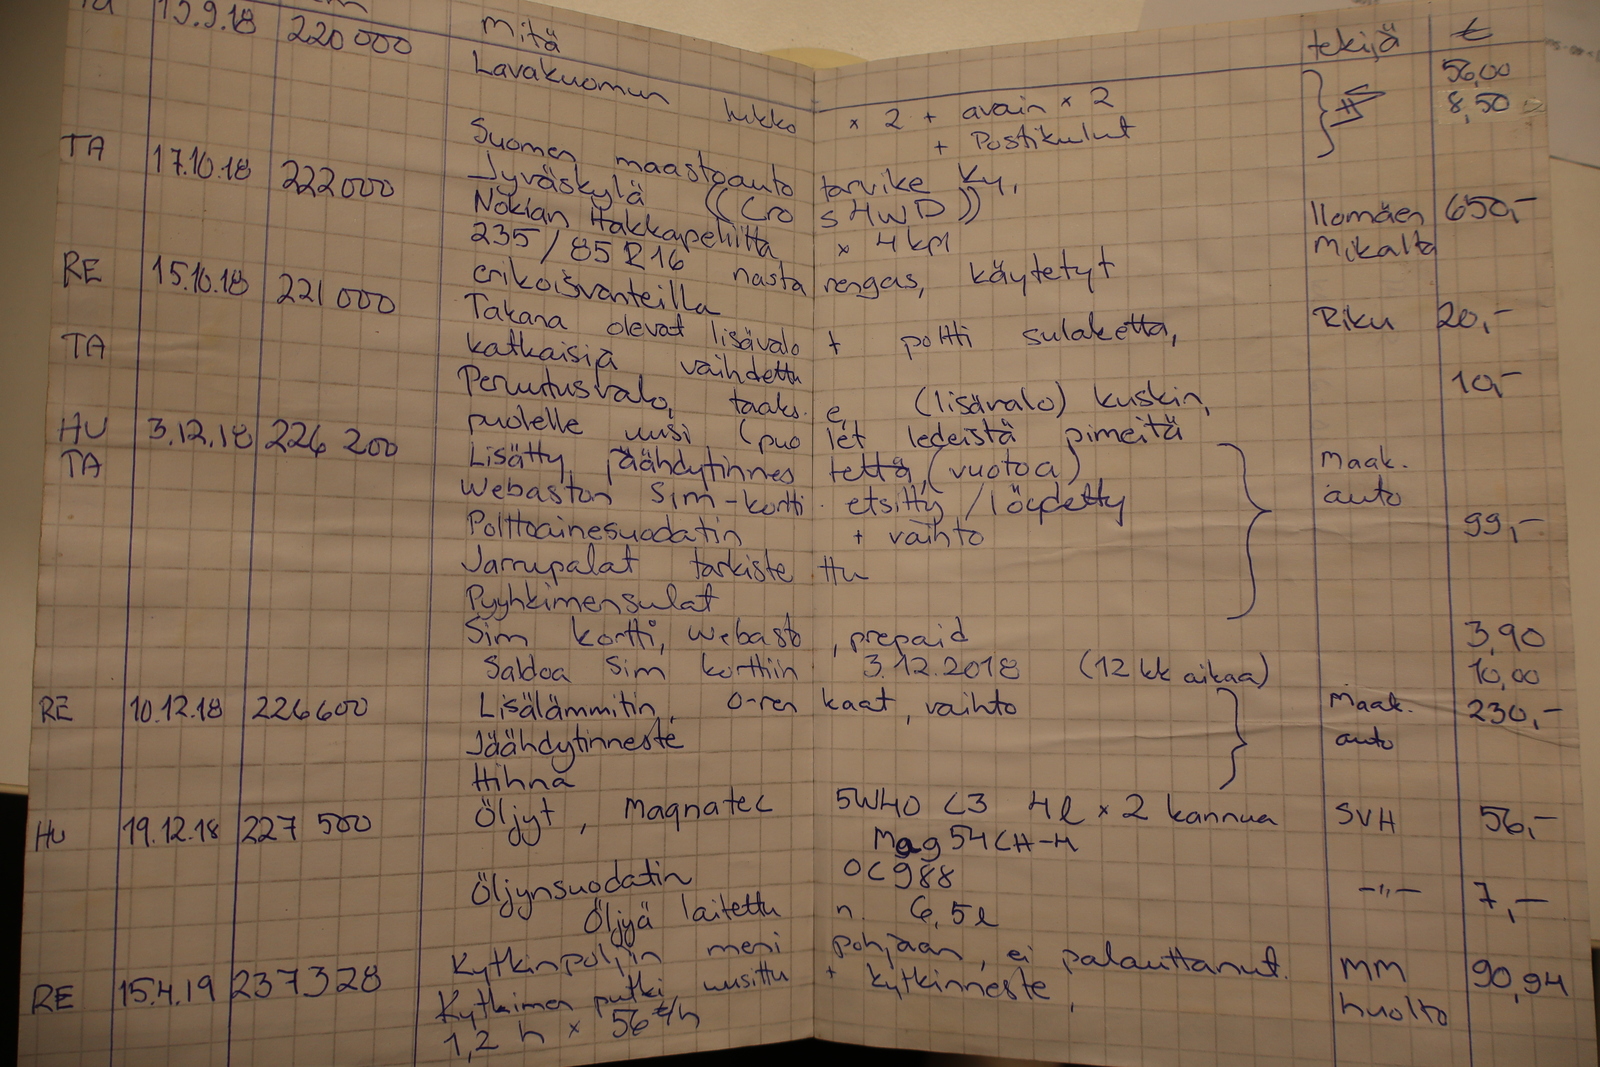 19.9.18 220 000 Mitä tekijä €
Lavakuomun lukko x 2 + avain x 2 56,00
+ Postikulut 8,50
Suomen maastoauto tarvike Ky,
Jyväskylä ((Cros 4WD))
TA 17.10.18 222000 Nokian Hakkapeliitta x 4 kpl Ilomäen 650,-
235/85R16 nasta rengas, käytetyt Mikalta
erikoisvanteilla
RE 15.10.18 221 000 Takana olevat lisävalo + poltti sulaketta, Riku 20,-
katkaisija vaihdettu
TA Peruutusvalo, taakse, (lisävalo) kuskin, 10,-
puolelle uusi (puolet ledeistä pimeitä
HU 3.12.18 226 200 Lisätty jäähdytinnestettä, (vuotoa) Maak.
TA Webaston Sim-kortti etsitty / löydetty auto
Polttoainesuodatin + vaihto 99,-
Jarrupalat tarkistettu
Pyyhkimensulat
Sim kortti, Webasto, prepaid 3,90
Saldoa Sim korttiin 3.12.2018 (12 kk aikaa) 10,00
RE 10.12.18 226600 Lisälämmitin, o-renkaat, vaihto Maak. 230,-
Jäähdytinneste auto
Hihna
HU 19.12.18 227 500 Öljyt, Magnatec 5W40 C3 4l x 2 kannua SVH 56,-
Mag54CH-H
Öljynsuodatin OC988 -"- 7,-
Öljyä laitettu n. 6,5l
RE 15.4.19 237328 Kytkinpoljin meni pohjaan, ei palauttanut. MM 90,94
Kytkimen putki uusittu + kytkinneste, huolto
1,2 h x 56 €/h